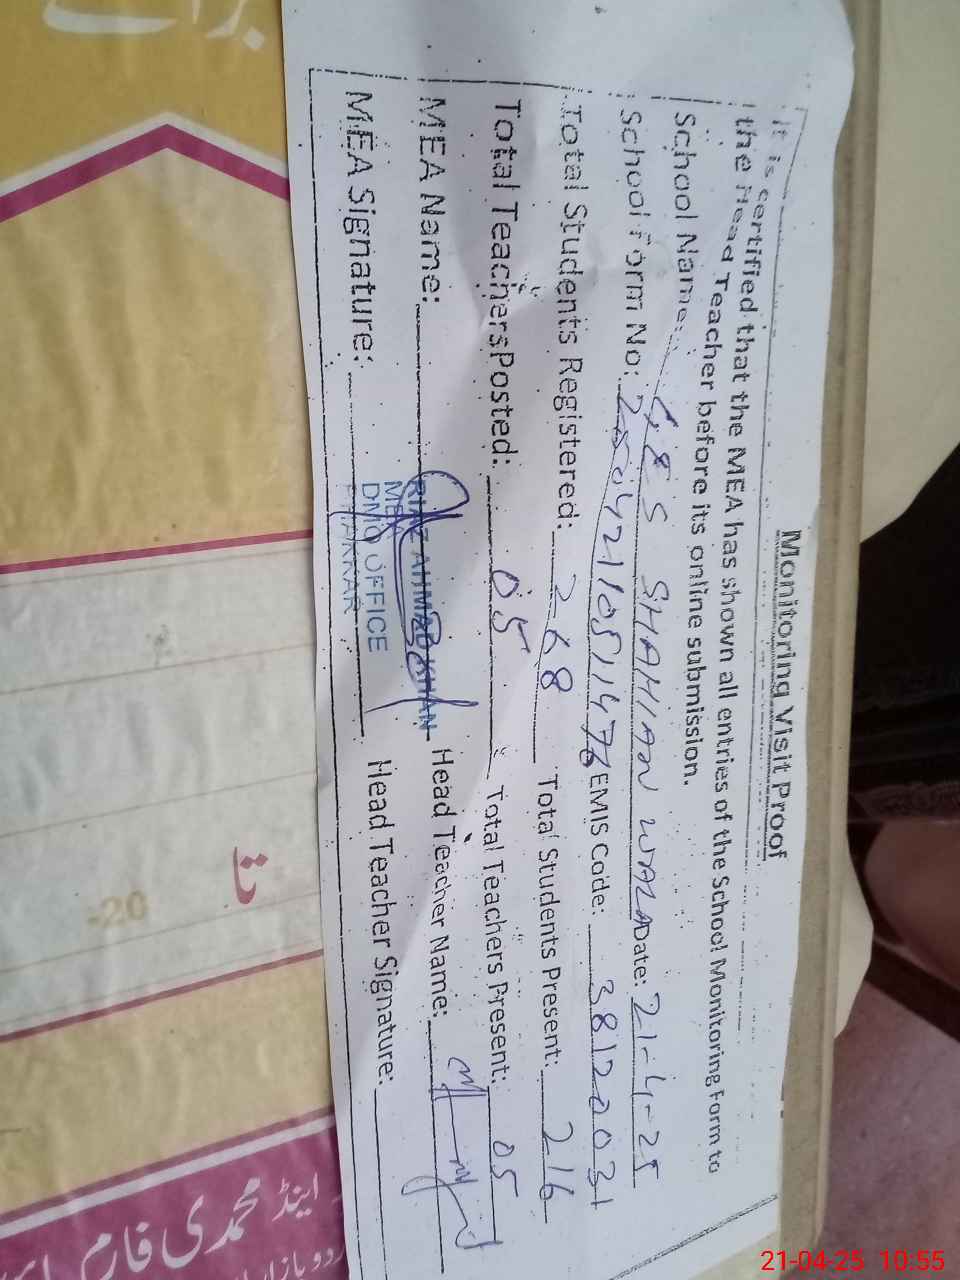 Monitoring Visit Proof
It is certified that the MEA has shown all entries of the School Monitoring Form to
the Head Teacher before its online submission.
School Name: G.E.S SHAHIAN WALA Date: 21-4-25
School Form No: EMIS Code: 38120031
Total Students Registered: 268 Total Students Present: 216
Total Teachers Posted: 05 Total Teachers Present: 05
MEA Name: RIAZ AHMAD KHAN Head Teacher Name:
MEA
MEA Signature: DMO OFFICE Head Teacher Signature:
BHAKKAR
برائے
-20
اینڈ محمدی فارم
21-04-25 10:55